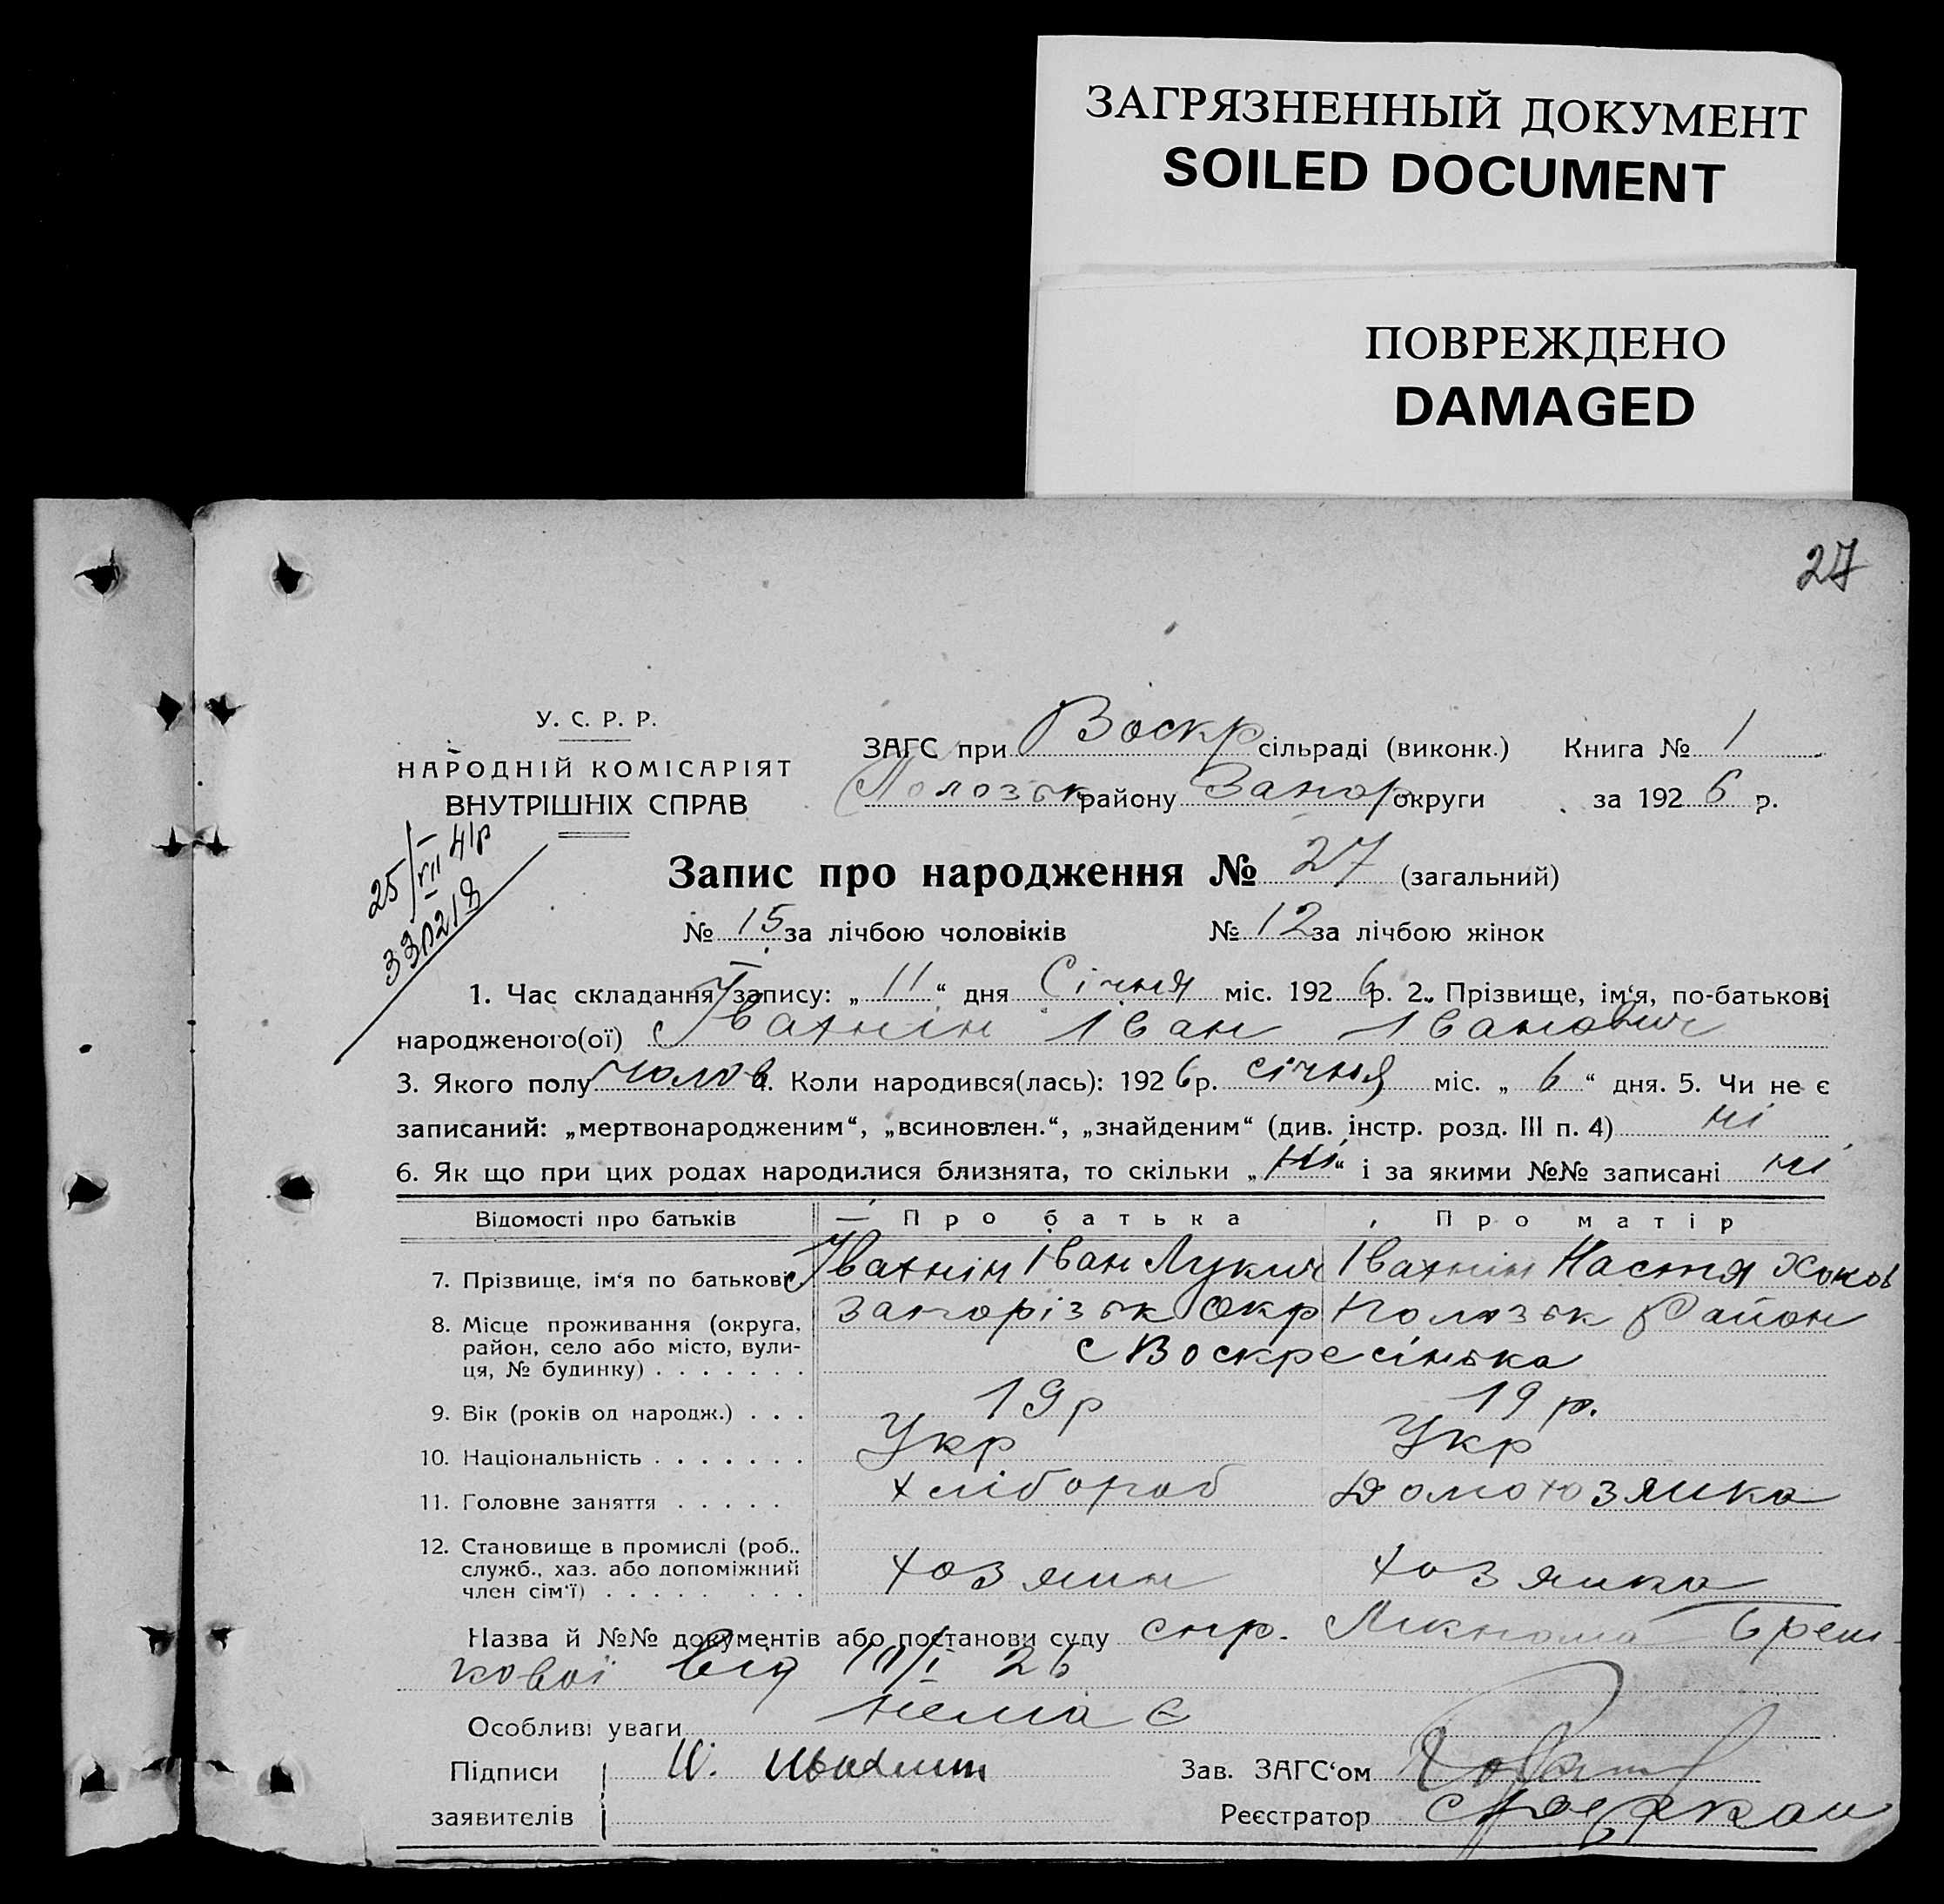 ЗАГРЯЗНЕННЫЙ ДОКУМЕНТ
SOILED DOCUMENT
ПОВРЕЖДЕНО
DAMAGED
27
У. С. Р. Р.
НАРОДНІЙ КОМІСАРІЯТ
ВНУТРІШНІХ СПРАВ
ЗАГС при Воскр сільраді (виконк.) Книга № 1
Полозьк району Запор округи за 1926 р.
25/VII 41р
Запис про народження № 27 (загальний)
№ 15 за лічбою чоловіків № 12 за лічбою жінок
1. Час складання запису: „11“ дня Січня міс. 1926р. 2. Прізвище, ім‘я, по-батькові
народженого(ої) Івахнін Іван Іванович
3. Якого полу чолов 4. Коли народився(лась): 1926р. січня міс. „6“ дня. 5. Чи не є
записаний: „мертвонародженим“, „всиновлен.“, „знайденим“ (див. інстр. розд. III п. 4) ні
6. Як що при цих родах народилися близнята, то скільки „ні“ і за якими №№ записані ні
Відомості про батьків Про батька Про матір
7. Прізвище, ім‘я по батькові. Івахнін Іван Лукич Івахнін Настя
8. Місце проживання (округа, район, село або місто, вулиця, № будинку) . . . . . . . Запорізьк Окр Полозьк Район
с Воскресінька
9. Вік (років од народж.) . . . 19р 19 р.
10. Національність . . . . . . . Укр Укр
11. Головне заняття . . . . . хлібороб Домохозяйка
12. Становище в промислі (роб.. служб., хаз. або допоміжний член сім‘ї) . . . . . . . . хозяин хозяйка
Назва й №№ документів або постанови суду спр.
кової від 26
Особливі уваги немає
Підписи Зав. ЗАГС‘ом
заявителів Реєстратор